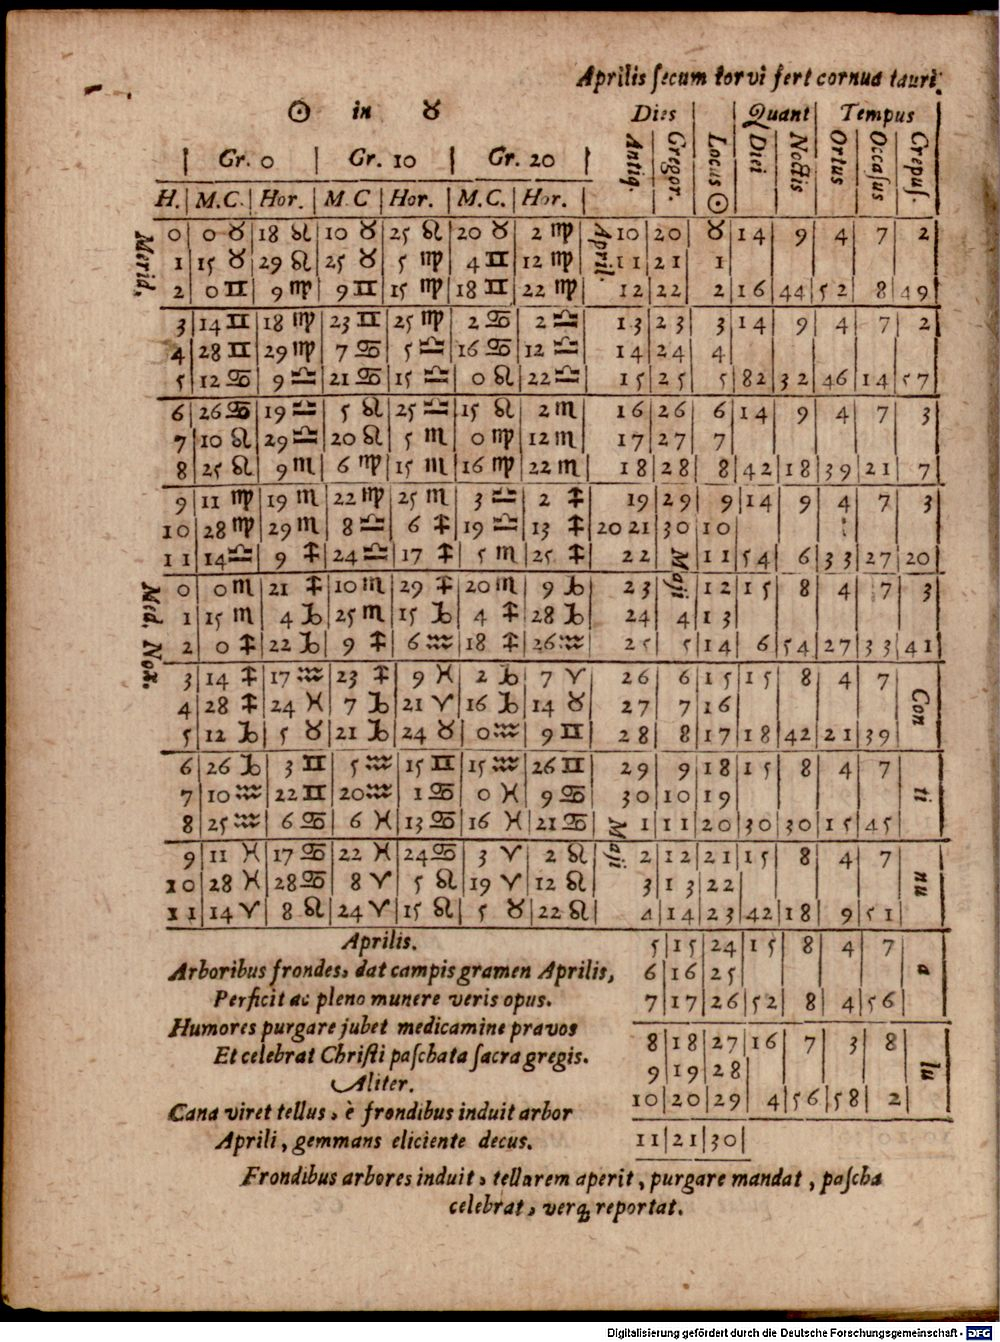 Aprilis ſecum torvi fert cornua tauri.
☉ in ♉
Dies | Quant | Tempus
Gr. 0 | Gr. 10 | Gr. 20
Antiq. | Gregor. | Locus ☉ | Diei | Noctis | Ortus | Occaſus | Crepuſ.
H. | M.C. | Hor. | M.C | Hor. | M.C. | Hor.
Merid.
April.
0 | 0 ♉ | 18 ♌ | 10 ♉ | 25 ♌ | 20 ♉ | 2 ♍ | 10 | 20 | ♉ | 14 | 9 | 4 | 7 | 2
1 | 15 ♉ | 29 ♌ | 25 ♉ | 5 ♍ | 4 ♊ | 12 ♍ | 11 | 21 | 1
2 | 0 ♊ | 9 ♍ | 9 ♊ | 15 ♍ | 18 ♊ | 22 ♍ | 12 | 22 | 2 | 16 | 44 | 52 | 8 | 49
3 | 14 ♊ | 18 ♍ | 23 ♊ | 25 ♍ | 2 ♋ | 2 ♎ | 13 | 23 | 3 | 14 | 9 | 4 | 7 | 2
4 | 28 ♊ | 29 ♍ | 7 ♋ | 5 ♎ | 16 ♋ | 12 ♎ | 14 | 24 | 4
5 | 12 ♋ | 9 ♎ | 21 ♋ | 15 ♎ | 0 ♌ | 22 ♎ | 15 | 25 | 5 | 82 | 32 | 46 | 14 | 57
6 | 26 ♋ | 19 ♎ | 5 ♌ | 25 ♎ | 15 ♌ | 2 ♏ | 16 | 26 | 6 | 14 | 9 | 4 | 7 | 3
7 | 10 ♌ | 29 ♎ | 20 ♌ | 5 ♏ | 0 ♍ | 12 ♏ | 17 | 27 | 7
8 | 25 ♌ | 9 ♏ | 6 ♍ | 15 ♏ | 16 ♍ | 22 ♏ | 18 | 28 | 8 | 42 | 18 | 39 | 21 | 7
9 | 11 ♍ | 19 ♏ | 22 ♍ | 25 ♏ | 3 ♎ | 2 ♐ | 19 | 29 | 9 | 14 | 9 | 4 | 7 | 3
10 | 28 ♍ | 29 ♏ | 8 ♎ | 6 ♐ | 19 ♎ | 13 ♐ | 20 21 | 30 | 10
11 | 14 ♎ | 9 ♐ | 24 ♎ | 17 ♐ | 5 ♏ | 25 ♐ | 22 | Maji | 11 | 54 | 6 | 33 | 27 | 20
Med. Nox.
0 | 0 ♏ | 21 ♐ | 10 ♏ | 29 ♐ | 20 ♏ | 9 ♑ | 23 | | 12 | 15 | 8 | 4 | 7 | 3
1 | 15 ♏ | 4 ♑ | 25 ♏ | 15 ♑ | 4 ♐ | 28 ♑ | 24 | 4 | 13
2 | 0 ♐ | 22 ♑ | 9 ♐ | 6 ♒ | 18 ♐ | 26 ♒ | 25 | 5 | 14 | 6 | 54 | 27 | 33 | 41
3 | 14 ♐ | 17 ♒ | 23 ♐ | 9 ♓ | 2 ♑ | 7 ♈ | 26 | 6 | 15 | 15 | 8 | 4 | 7 | Con
4 | 28 ♐ | 24 ♓ | 7 ♑ | 21 ♈ | 16 ♑ | 14 ♉ | 27 | 7 | 16
5 | 12 ♑ | 5 ♉ | 21 ♑ | 24 ♉ | 0 ♒ | 9 ♊ | 28 | 8 | 17 | 18 | 42 | 21 | 39
6 | 26 ♑ | 3 ♊ | 5 ♒ | 15 ♊ | 15 ♒ | 26 ♊ | 29 | 9 | 18 | 15 | 8 | 4 | 7 | ti
7 | 10 ♒ | 22 ♊ | 20 ♒ | 1 ♋ | 0 ♓ | 9 ♋ | 30 | 10 | 19
8 | 25 ♒ | 6 ♋ | 6 ♓ | 13 ♋ | 16 ♓ | 21 ♋ | 1 | 11 | 20 | 30 | 30 | 15 | 45
Maji
9 | 11 ♓ | 17 ♋ | 22 ♓ | 24 ♋ | 3 ♈ | 2 ♌ | 2 | 12 | 21 | 15 | 8 | 4 | 7 | nu
10 | 28 ♓ | 28 ♋ | 8 ♈ | 5 ♌ | 19 ♈ | 12 ♌ | 3 | 13 | 22
11 | 14 ♈ | 8 ♌ | 24 ♈ | 15 ♌ | 5 ♉ | 22 ♌ | 4 | 14 | 23 | 42 | 18 | 9 | 51
5 | 15 | 24 | 15 | 8 | 4 | 7 | a
6 | 16 | 25
7 | 17 | 26 | 52 | 8 | 4 | 56
8 | 18 | 27 | 16 | 7 | 3 | 8 | lu
9 | 19 | 28
10 | 20 | 29 | 4 | 56 | 58 | 2
11 | 21 | 30
Aprilis.
Arboribus frondes, dat campis gramen Aprilis,
Perficit ac pleno munere veris opus.
Humores purgare jubet medicamine pravos
Et celebrat Chriſti paſchata ſacra gregis.
Aliter.
Cana viret tellus, è frondibus induit arbor
Aprili, gemmans eliciente decus.
Frondibus arbores induit, tellurem aperit, purgare mandat, paſcha
celebrat, verq; reportat.
Digitalisierung gefördert durch die Deutsche Forschungsgemeinschaft - DFG